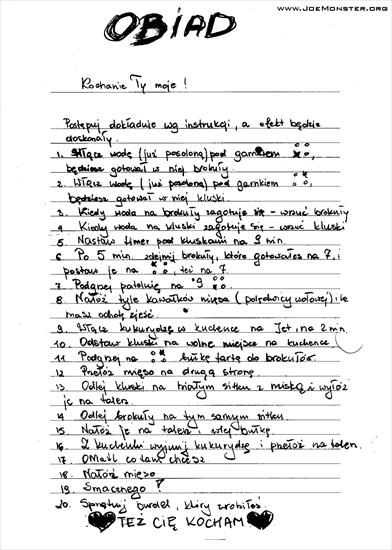 www.JoeMonster.org
OBIAD
Kochanie Ty moje!
Postępuj dokładnie wg instrukcji, a efekt będzie
doskonały.
1. Włącz wodę (już posoloną) pod garnkiem
będziesz gotował w niej brokuły.
2. Włącz wodę (już posoloną) pod garnkiem
będziesz gotował w niej kluski.
3. Kiedy woda na brokuły zagotuje się - wrzuć brokuły
4. Kiedy woda na kluski zagotuje się - wrzuć kluski
5. Nastaw timer pod kluskami na 9 min.
6. Po 5 min. zdejmij brokuły, które gotowałeś na 7, i
postaw je na , też na 7.
7. Podgrzej patelnię na 9
8. Nałóż tyle kawałków mięsa (polędwicy wołowej) ile
masz ochotę zjeść.
9. Włącz kukurydzę w kuchence na Jet na 2 min.
10. Odstaw kluski na wolne miejsce na kuchence
11. Podgrzej na bułkę tartą do brokułów.
12. Przełóż mięso na drugą stronę.
13. Odlej kluski na białym sitku z miską i wyłóż
je na talerz.
14. Odlej brokuły na tym samym sitku.
15. Nałóż je na talerz i wlej bułkę.
16. Z kuchenki wyjmij kukurydzę i przełóż na talerz.
17. Omaść co tam chcesz
18. Nałóż mięso
19. Smacznego!
20. Sprzątnij burdel, który zrobiłeś
TEŻ CIĘ KOCHAM